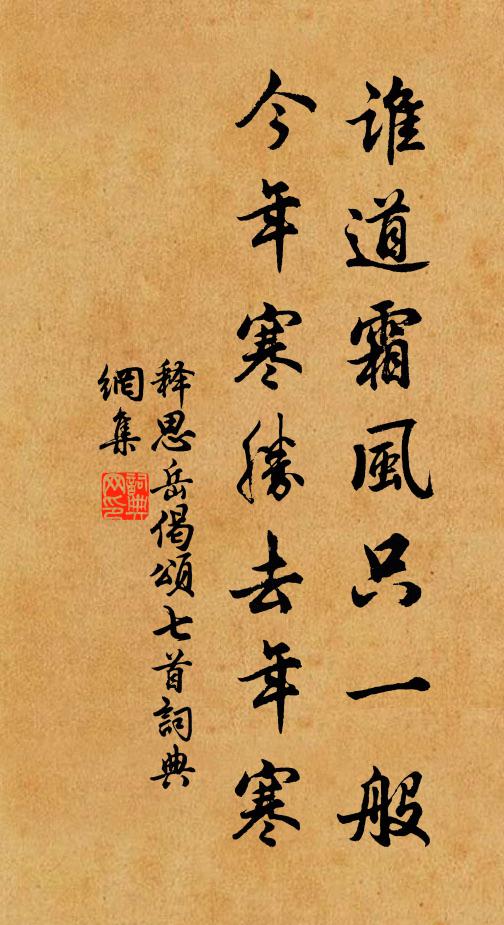 谁道霜風只一般
今年寒勝去年寒
释思岳偈頌七首詞典
網集
詞典
网印